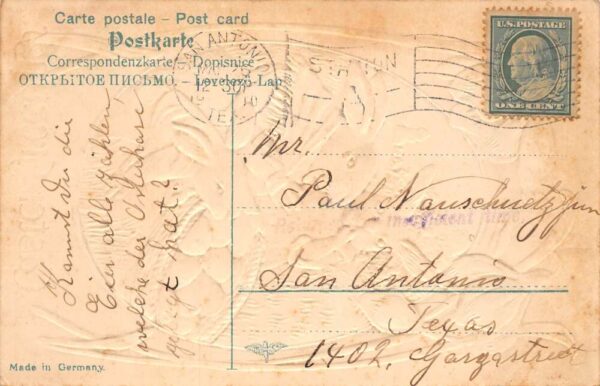 Carte postale – Post card
Postkarte
Correspondenzkarte – Dopisnice
ОТКРЫТОЕ ПИСЬМО. – Levelezö-Lap
SAN ANTONIO
TEX
STATION
U.S. POSTAGE
ONE CENT
Kannst Du die
Eier alle zählen,
welche der Osterhase
gelegt hat?
Mr.
Paul Nauschuetz jun
San Antonio
Texas
1402, Garzastreet
Made in Germany.